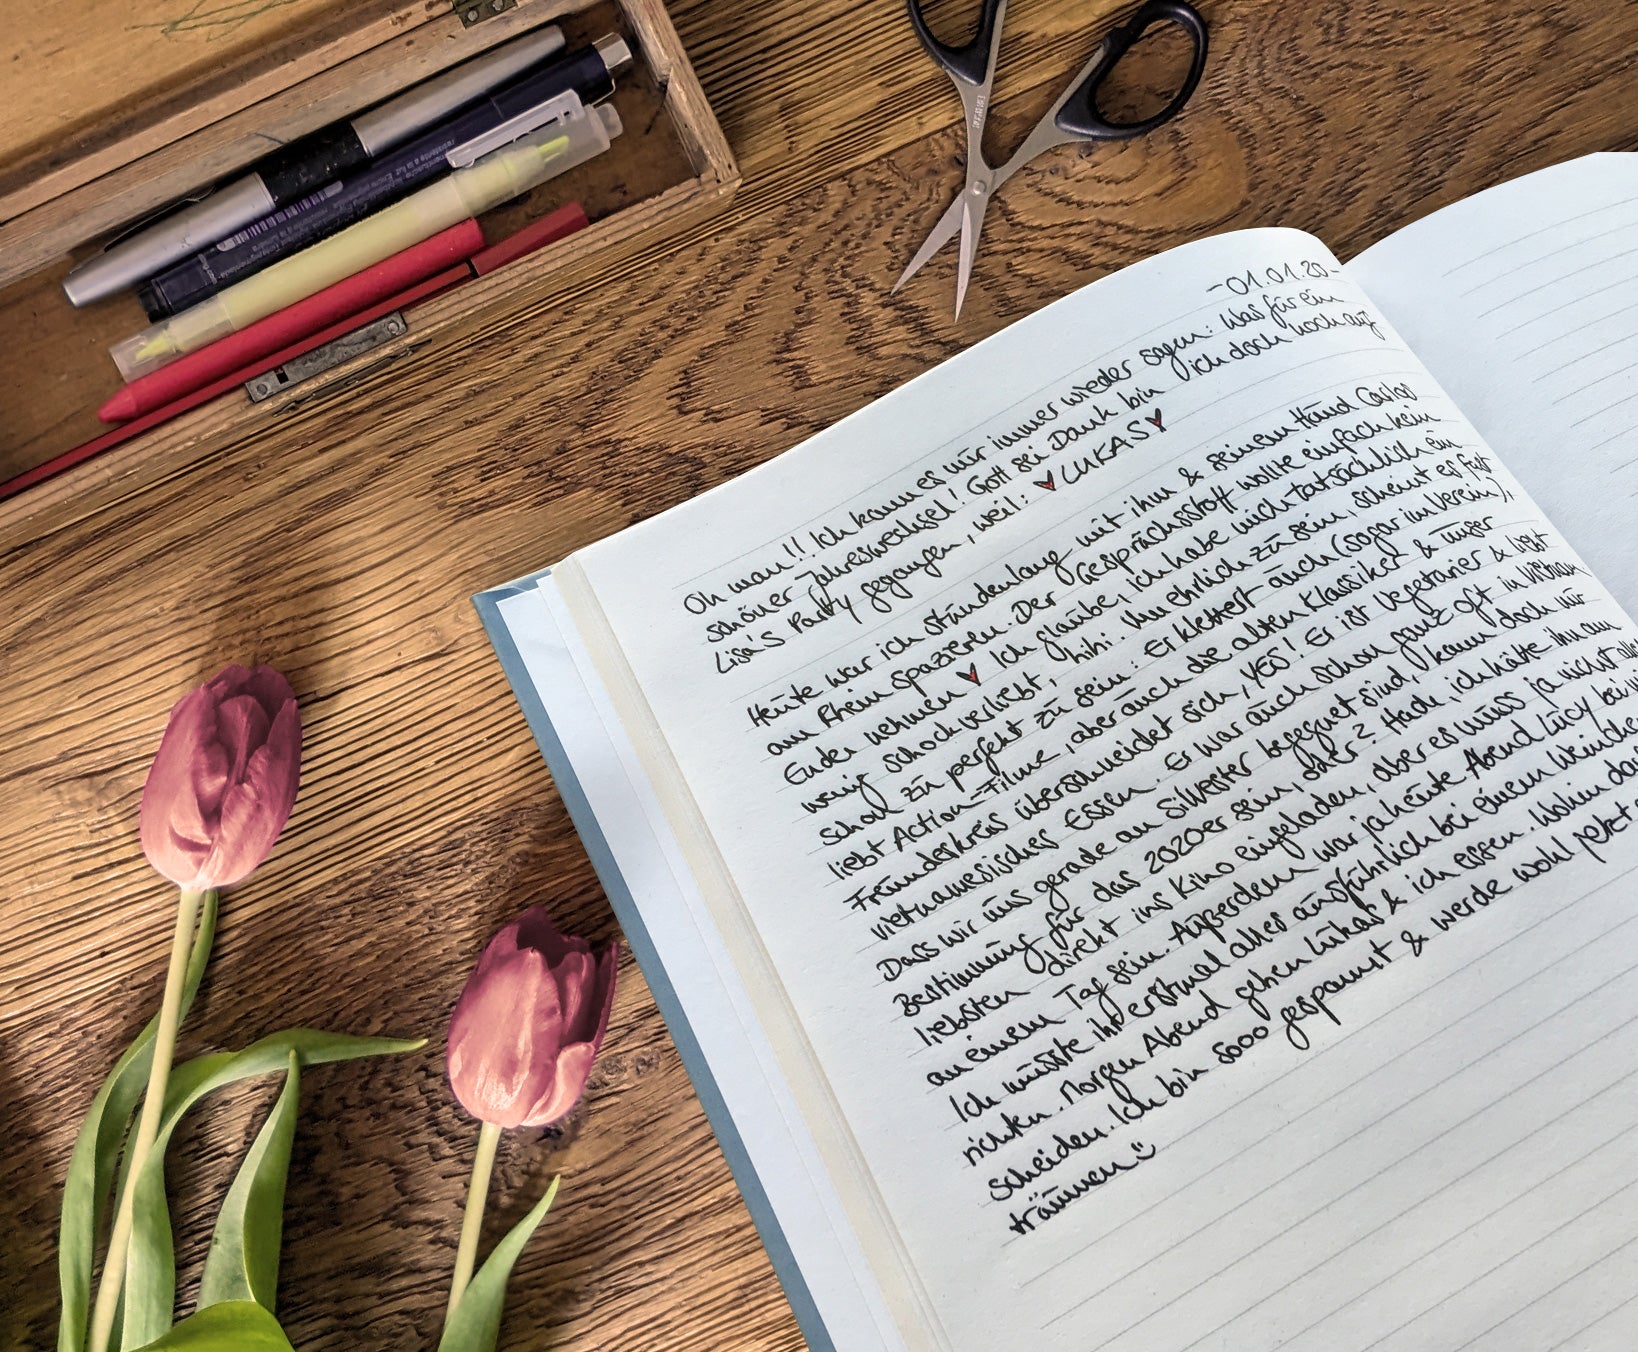 -01.01.20-
Oh man!! Ich kann es nur immer wieder sagen: Was für ein
schöner Jahreswechsel! Gott sei Dank bin ich doch noch auf
Lisa's Party gegangen, weil: ♥LUKAS♥
Heute war ich stundenlang mit ihm & seinem Hund Carlos
am Rhein spazieren. Der Gesprächsstoff wollte einfach kein
Ende nehmen ♥ Ich glaube, ich habe mich tatsächlich ein
wenig schockverliebt, hihi. Um ehrlich zu sein, scheint es fast
schon zu perfekt zu sein: Er klettert auch (sogar im Verein),
liebt Action-Filme, aber auch die alten Klassiker & unser
Freundeskreis überschneidet sich, YES! Er ist Vegetarier & liebt
vietnamesisches Essen. Er war auch schon ganz oft in Vietnam
Dass wir uns gerade an Silvester begegnet sind, kann doch nur
Bestimmung für das 2020er sein, oder? Hach, ich hätte ihn am
liebsten direkt ins Kino eingeladen, aber es muss ja nicht alles
an einem Tag sein. Außerdem war ja heute Abend Lucy bei
Ich musste ihr erstmal alles ausführlich bei einem Weinchen
richten. Morgen Abend gehen Lukas & ich essen. Wohin
scheiden. Ich bin sooo gespannt & werde wohl jetzt
träumen ☺